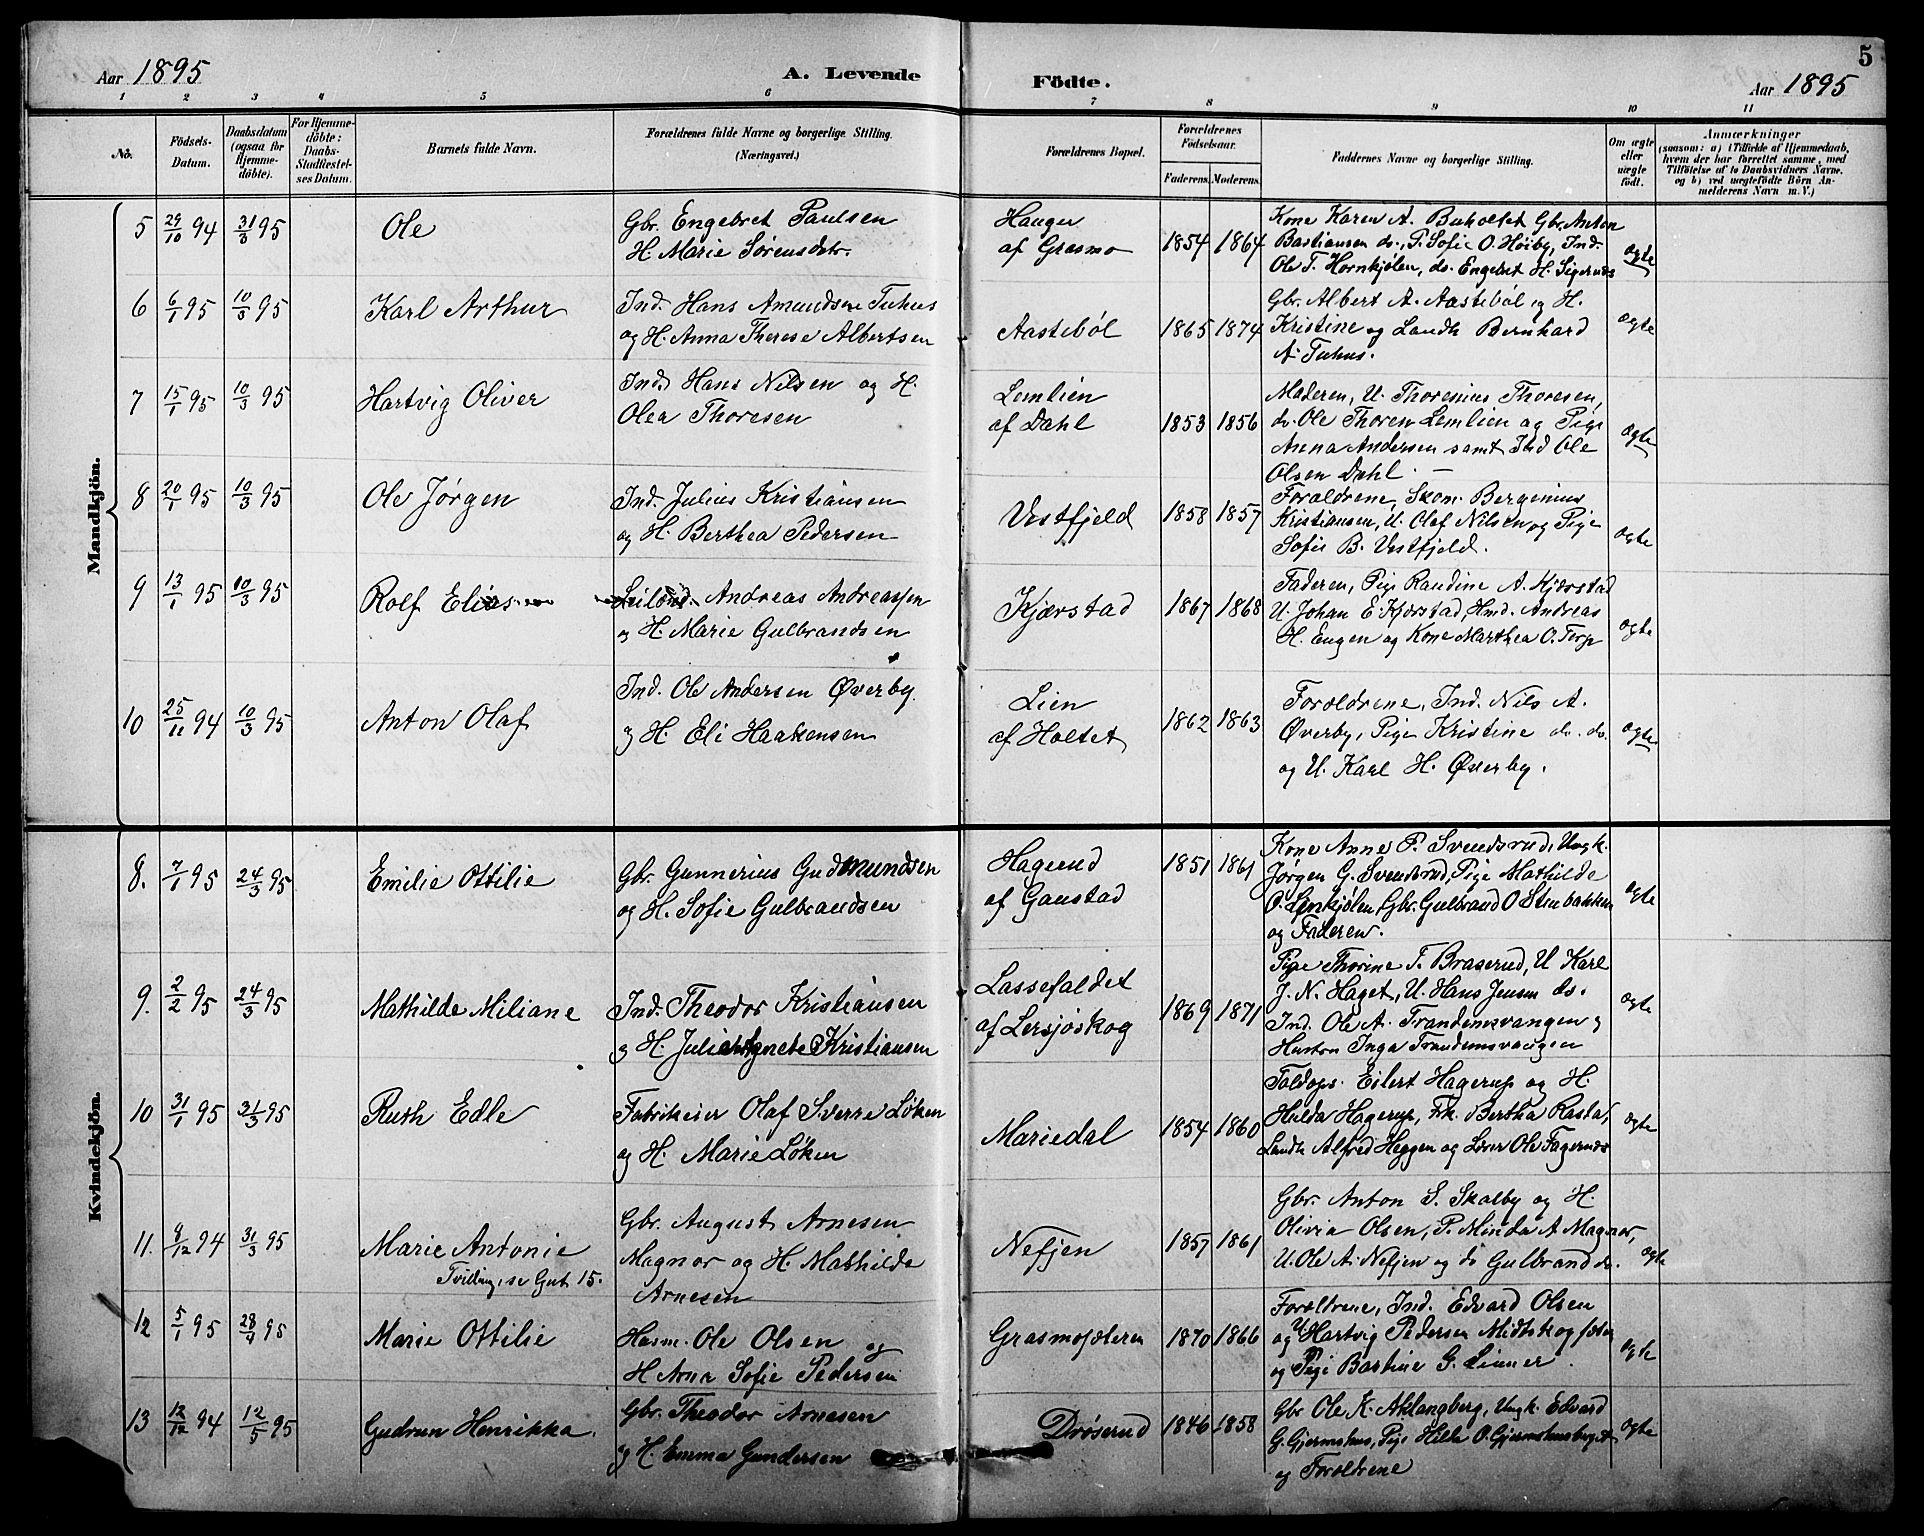 Aar 1895
A. Levende
Födte.
5
Aar 1895
1 2 3 4 5 6 7 8 9 10 11
No.
Födsels-
Datum.
Daabsdatum
(ogsaa for
Hjemme-
döbte).
For Hjemme-
döbte:
Daabs-
Stadfæstel-
ses Datum.
Barnets fulde Navn.
Forældrenes fulde Navne og borgerlige Stilling.
(Næringsvei.)
Forældrenes Bopæl.
Forældrenes
Födselsaar.
Faderens. Moderens.
Faddernes Navne og borgerlige Stilling.
Om ægte
eller
uægte
født.
Anmærkninger
(saasom: a) i Tilfælde af Hjemmedaab,
hvem der har forrettet samme, med
Tilföielse af to Daabsvidners Navne.
og b) ved uægtefödte Börn An-
melderens Navn m. V.)
Mandkjön.
5 29/10 94 31/3 95 Ole
Gbr. Engebret Paulsen
H. Marie Sørensdtr.
Hauger
af Grasmo
1854 1864
Kone Karen A. Buholtet Gbr. Anton
Bastiansen ds., P. Sofie O. Høiby, Ind.
Ole T. Hornkjølen, ds. Engebret H. Sigernæs
ægte
6 6/1 95 10/3 95 Karl Arthur
Ind. Hans Amundsen Tuhus
og H. Anna Therese Albertsen
Aastebøl
1865 1874
Gbr. Albert A. Aastebøl og H.
Kristine og Landh Bernhard
A. Tuhus.
ægte
7 15/1 95 10/3 95 Hartvig Oliver
Ind. Hans Nilsen og H.
Olea Thoresen
Lemlien
af Dahl
1853 1856
Moderen, U. Thorenius Thoresen,
ds. Ole Thoresen Lemlien og Pige
Anna Andersen samt Ind Ole
Olsen Dahl. —
ægte
8 20/1 95 10/3 95 Ole Jørgen
Ind. Julius Kristiansen
og H. Berthea Pedersen
Vestfjeld
1858 1857
Forældrene, Skom. Bergenius
Kristiansen, U. Olaf Nilsen og Pige
Sofie B. Vestfjeld.
ægte
9 13/1 95 10/3 95 Rolf Elias
Leilænd. Andreas Andreassen
og H. Marie Gulbrandsen
Kjærstad
1867 1868
Faderen, Pige Randine A. Kjærstad
U. Johan E. Kjærstad, Hmd. Andreas
H. Engen og Kone Marthea O. Torp
ægte
10 25/11 94 10/3 95 Anton Olaf
Ind. Ole Andersen Øverby
og H. Eli Haakensen
Lien
af Holtet
1862 1863
Forældrene, Ind. Nils A.
Øverby, Pige Kristine ds. ds.
og U. Karl H. Øverby.
ægte
Kvindekjön.
8. 7/1 95 24/3 95 Emilie Ottilie
Gbr. Gunnerius Gudmundsen
og H. Sofie Gulbrandsen
Hagerud
af Gaustad
1851 1861
Kone Anne P. Svendsrud, Ungk.
Jørgen G. Svendsrud, Pige Mathilde
O. Lønkjølen, Gbr. Gulbrand O Stenbakken
og Faderen.
ægte
9. 2/2 95 24/3 95 Mathilde Miliane
Ind. Theodor Kristiansen
og H. Julie Agnete Kristiansen
Lassefaldet
af Lersjøskog
1869 1871
Pige Thorine T. Braserud, U Karl
J. N. Haget, U. Hans Jensen ds.
Ind. Ole A. Trandemsvangen og
Hustru Inga Trandemsvangen
ægte
10 31/1 95 31/3 95 Ruth Edle
Fabrikeier Olaf Sverre Løken
og H. Marie Løken
Mariedal
1854 1860
Toldops. Eilert Hagerup og H.
Hulda Hagerup, Frk. Bertha Rasta,
Landh Alfred Heggen og Lærer Ole Fagernæs
ægte
11. 8/12 94 31/3 95 Marie Antonie
Tvilling, se Gut 15.
Gbr. August Arnesen
Magnor og H. Mathilde
Arnesen
Nefjen
1857 1861
Gbr. Anton S. Skalby og H.
Olivia Olsen, P. Minda A Magnor,
U. Ole A. Nefjen og ds Gulbrand ds.
ægte
12 5/1 95 28/4 95 Marie Ottilie
Husm. Ole Olsen og
H Anne Sofie Pedersen
Grasmosæteren
1870 1866
Forældrene, Ind. Edvard Olsen
og U Hartvig Pedersen Midtskogsæter
og Pige Bastine G. Linner.
ægte
13 12/12 94 12/5 95 Gudrun Henrikka.
Gbr. Theodor Arnesen
og H. Emma Gundersen
Drøserud
1846 1858
Gbr Ole K. Aklangberg, Ungk. Edvard
G. Gjermshus, Pige Hilla O. Gjermshusberget
og Forældrene
ægte